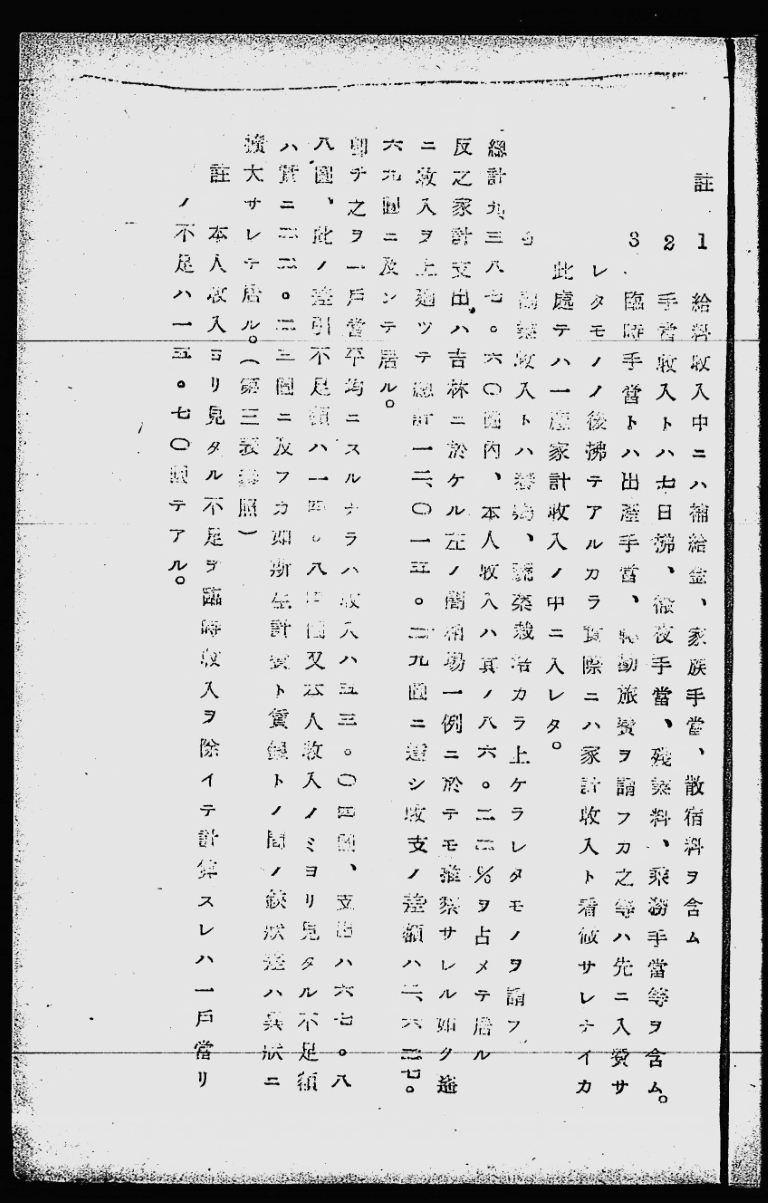 註 1 給料收入中ニハ補給金、家族手當、散宿料ヲ含ム
2 手當收入トハ七日沸、徹夜手當、殘業料、乘務手當等ヲ含ム。
3 臨時手當トハ出產手當、轉勤旅費ヲ謂フカ之等ハ先ニ入費サ
レタモノノ後拂テアルカラ實際ニハ家計收入ト看做サレナイカ
此處テハ一應家計收入ノ中ニ入レタ。
副業收入トハ養鷄、蔬菜栽培カラ上ケラレタモノヲ謂フ
總計九三八七。六〇圓內、本人收入ハ其ノ八六。二二%ヲ占メテ居ル
反之家計支出ハ吉林ニ於ケル左ノ 相場一例ニ於テモ推察サレル如ク遙
ニ收入ヲ上廻ツテ總計一二、〇一五。二九圓ニ達シ收支ノ差額ハ二、六二七。
六九圓ニ及ンテ居ル。
卽チ之ヲ一戶當平均ニスルナラハ收入ハ五三。〇四圓、支出ハ六七。八
八圓、此ノ差引不足額ハ一四。八四圓又本人收入ノミヨリ見タル不足額
ハ實ニ二二。 圓ニ及フカ如斯生計費ト賃銀トノ間ノ鋏狀差ハ異狀ニ
擴大サレテ居ル。(第三表參照)
註 本人收入ヨリ見タル不足ヲ臨時收入ヲ除イテ計算スレハ一戶當リ
ノ不足ハ一五。七〇圓テアル。